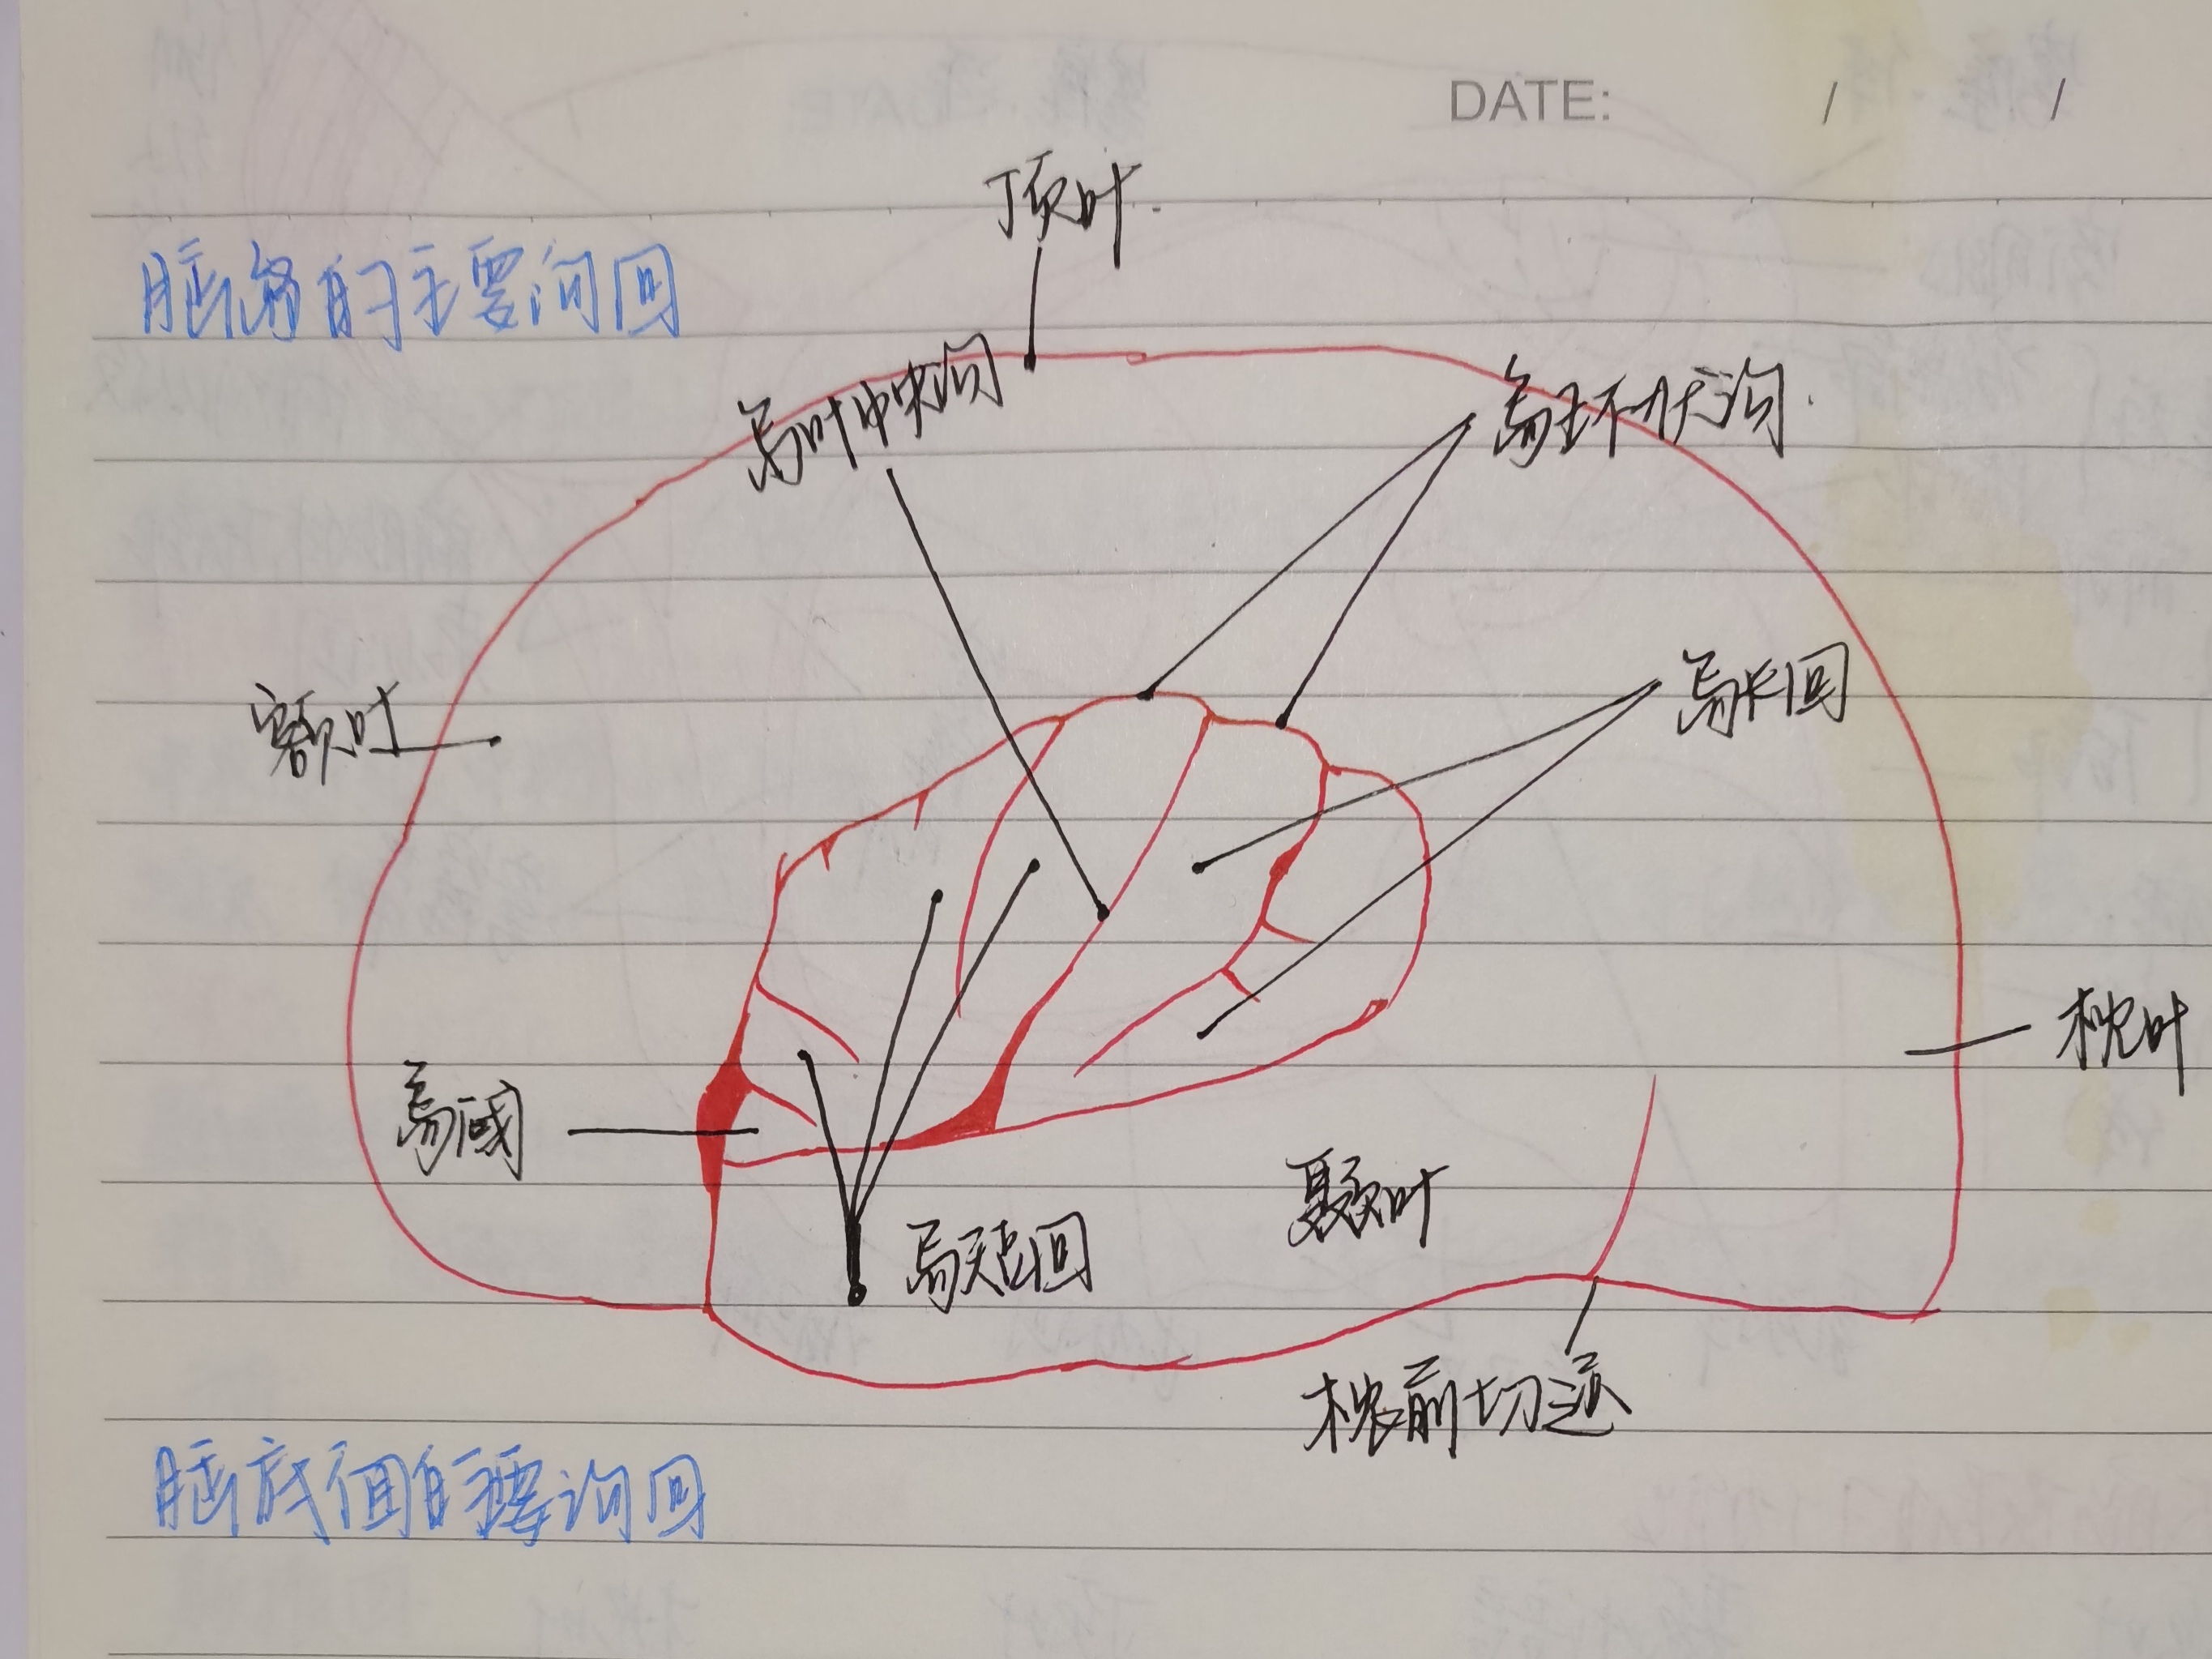 DATE: / /
顶叶
脑岛的主要沟回
岛叶中央沟
岛环状沟
岛长回
额叶
枕叶
岛阈
颞叶
岛短回
枕前切迹
脑底面的主要沟回